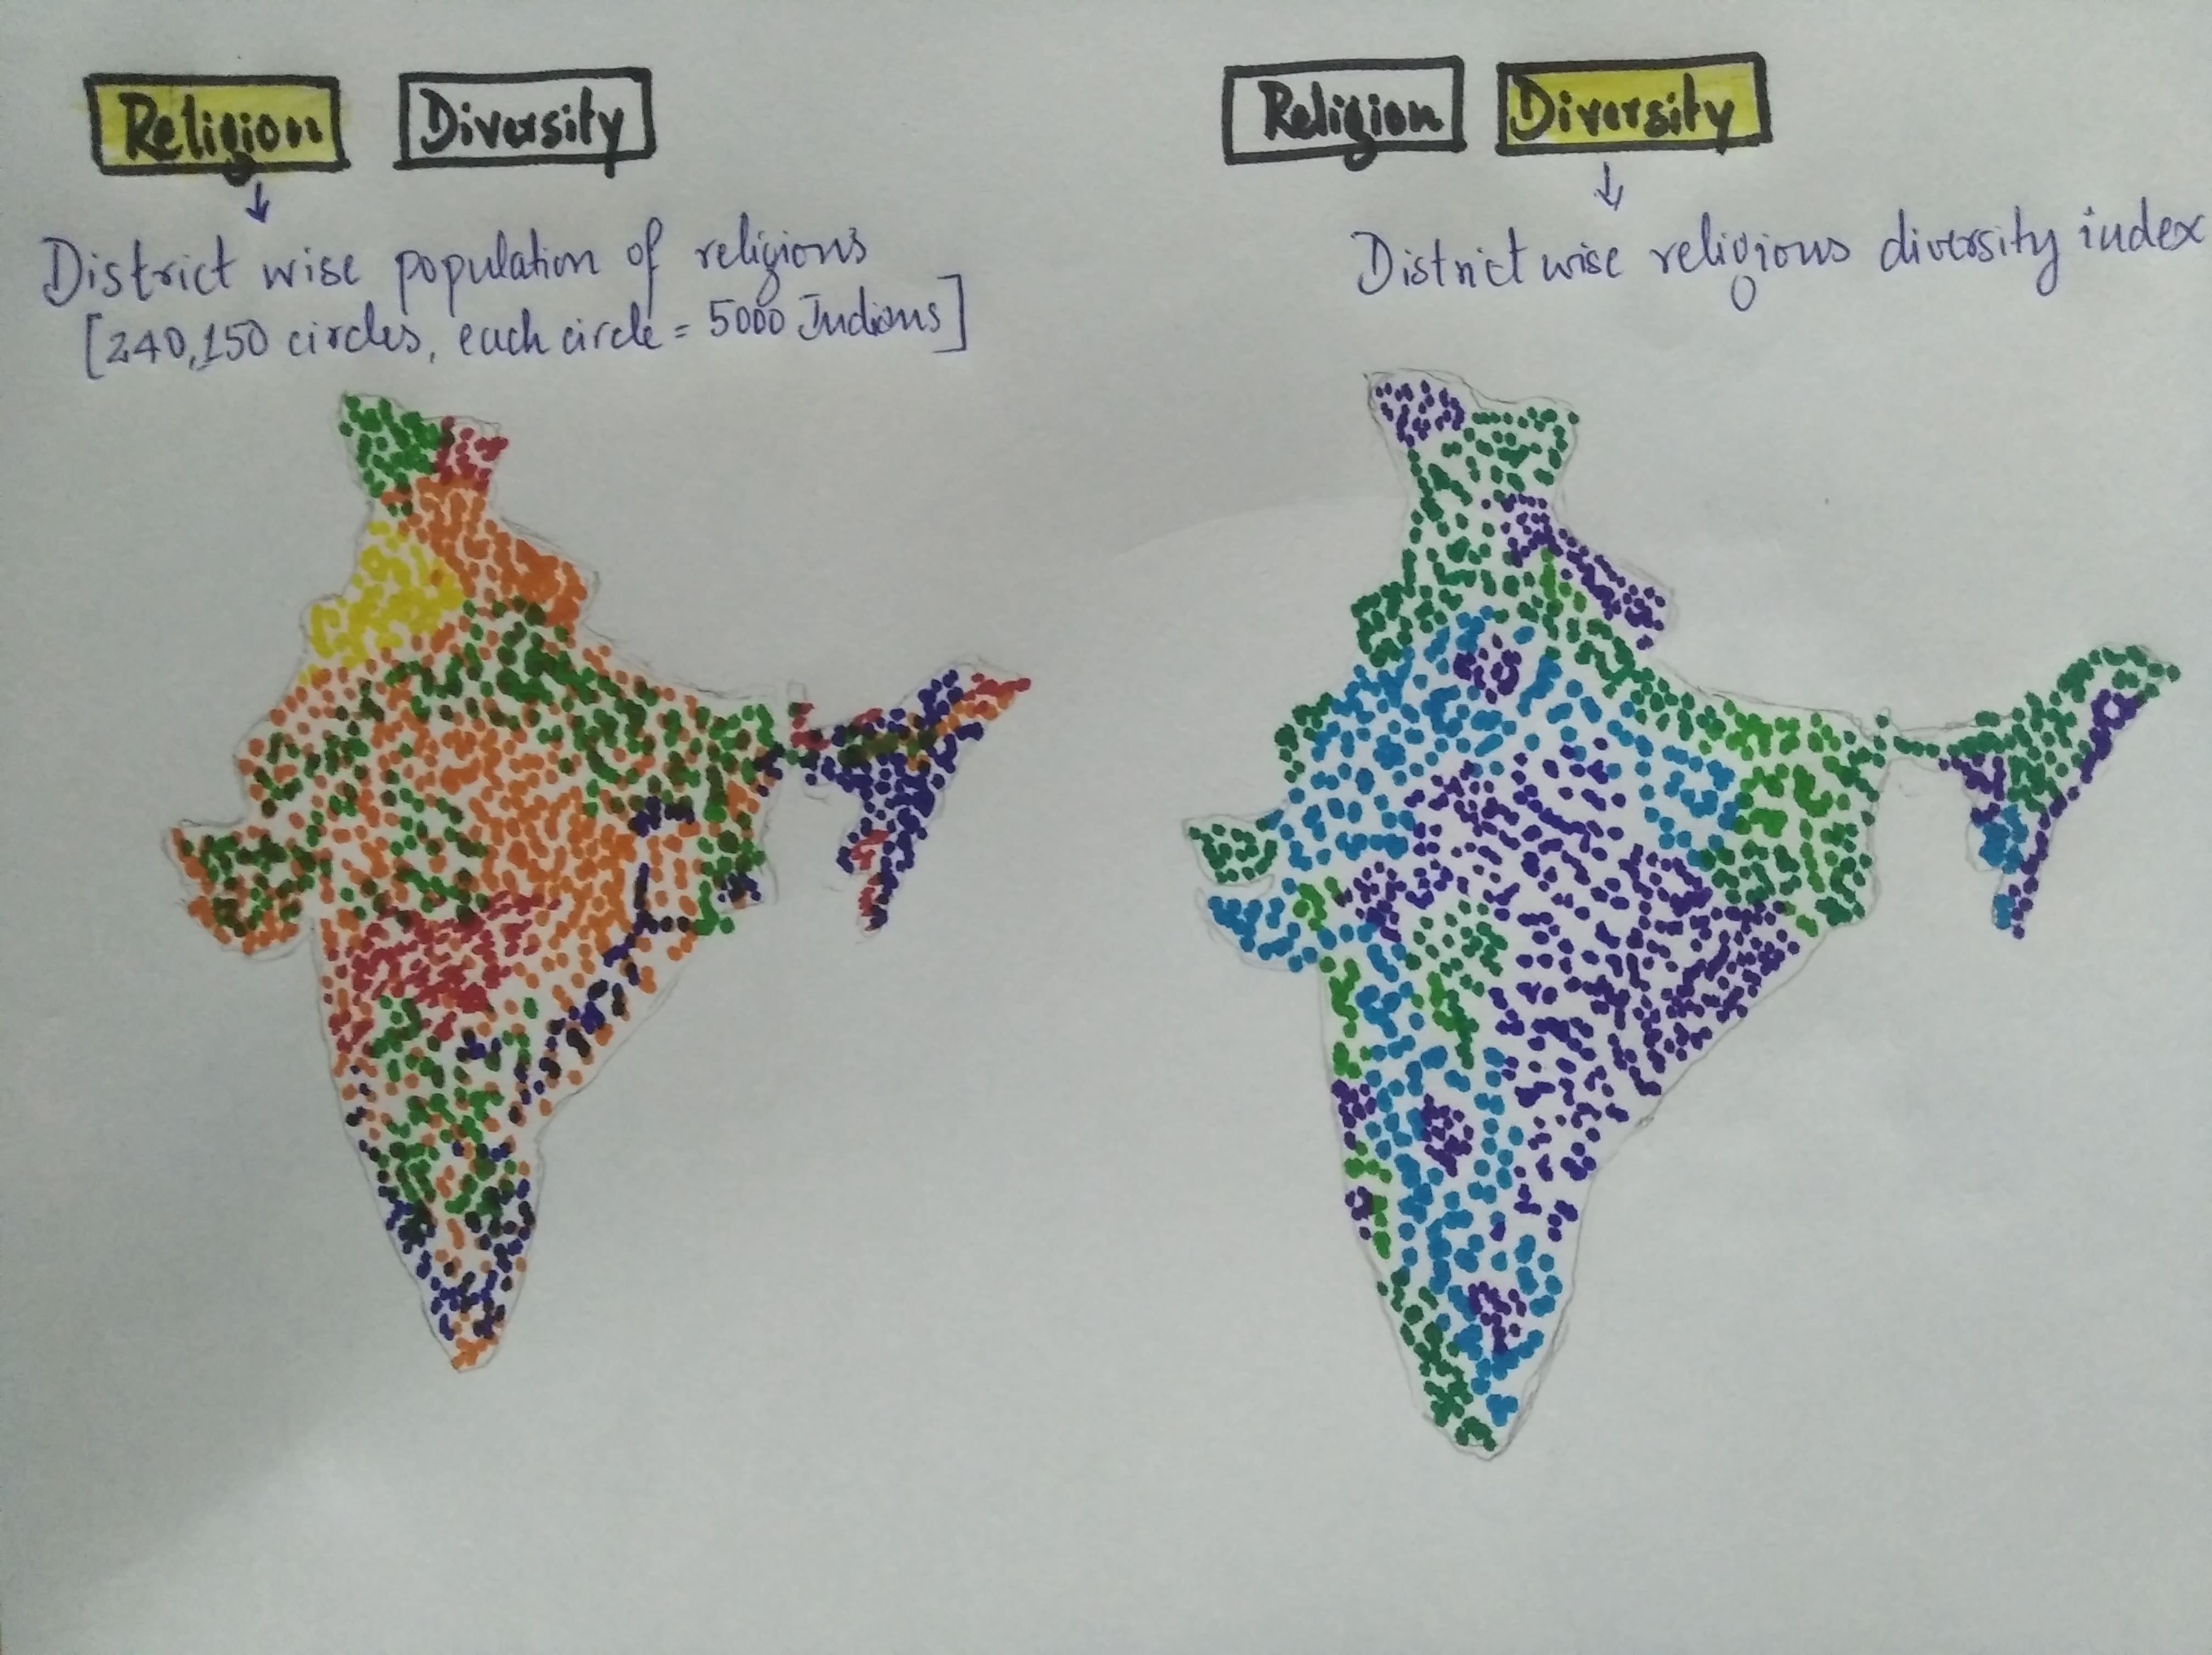 Religion Diversity
District wise population of religions
[240,150 circles, each circle = 5000 Indians]
Religion Diversity
District wise religious diversity index